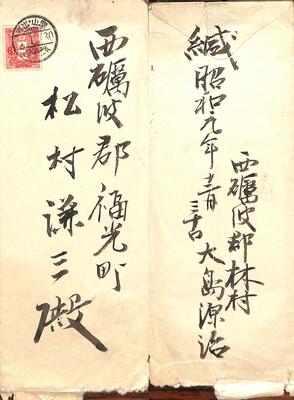 西礪波郡福光町
松村謙三殿
緘
昭和九年十二月三十日
西礪波郡林村
大島源治